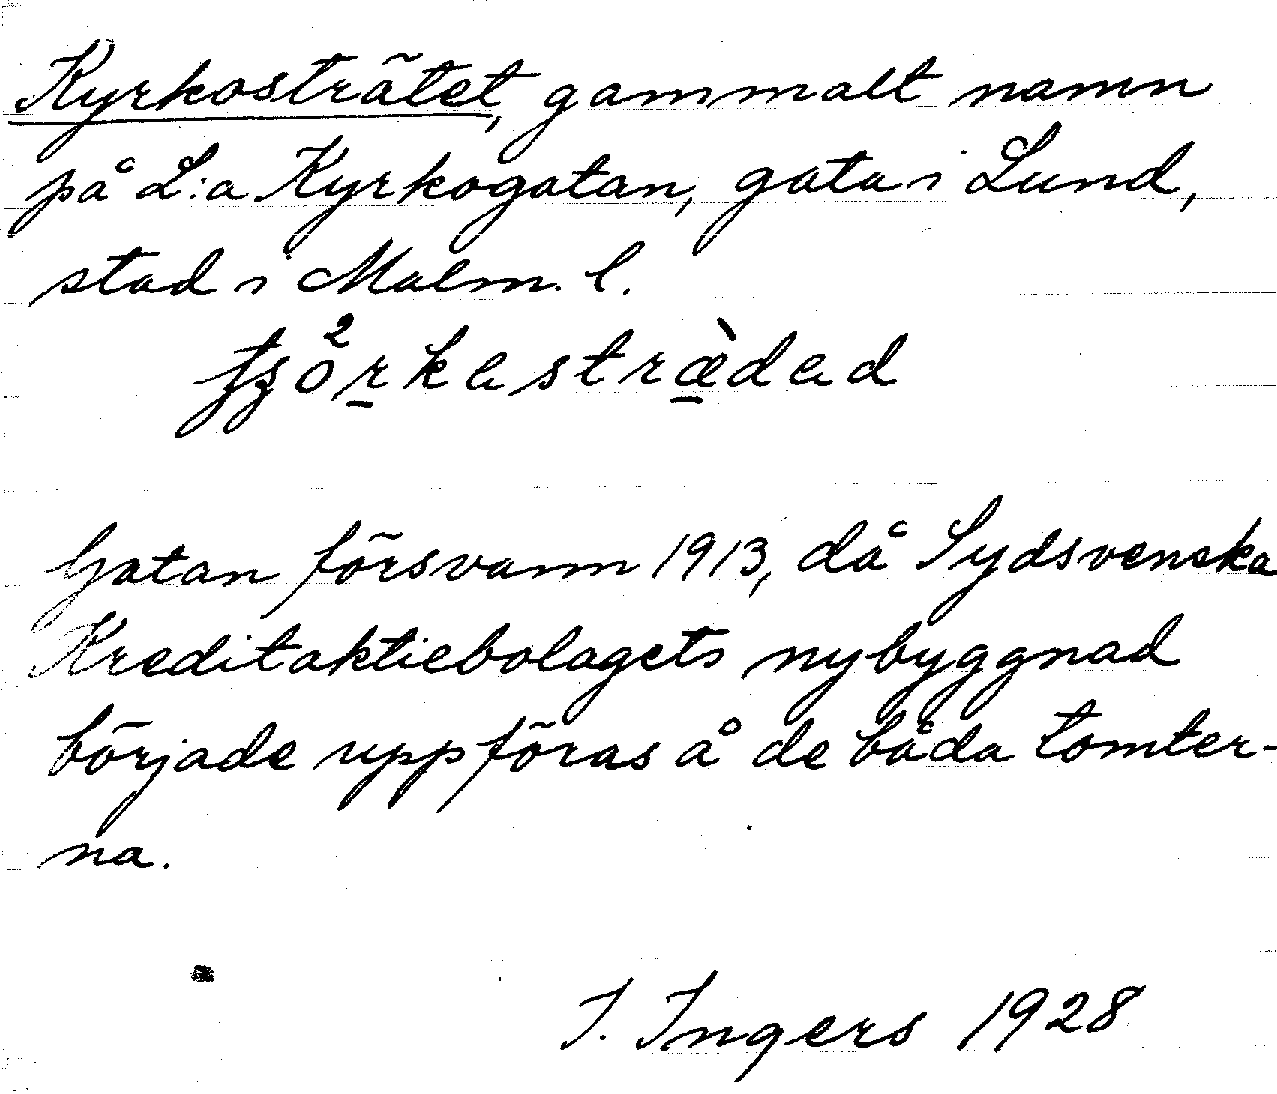 Kyrkosträtet, gammalt namn
på L:a Kyrkogatan, gata i Lund,
stad i Malm. l.
Gatan försvann 1913, då Sydsvenska
Kreditaktiebolagets nybyggnad
började uppföras å de båda tomter-
na.
I. Ingers 1928